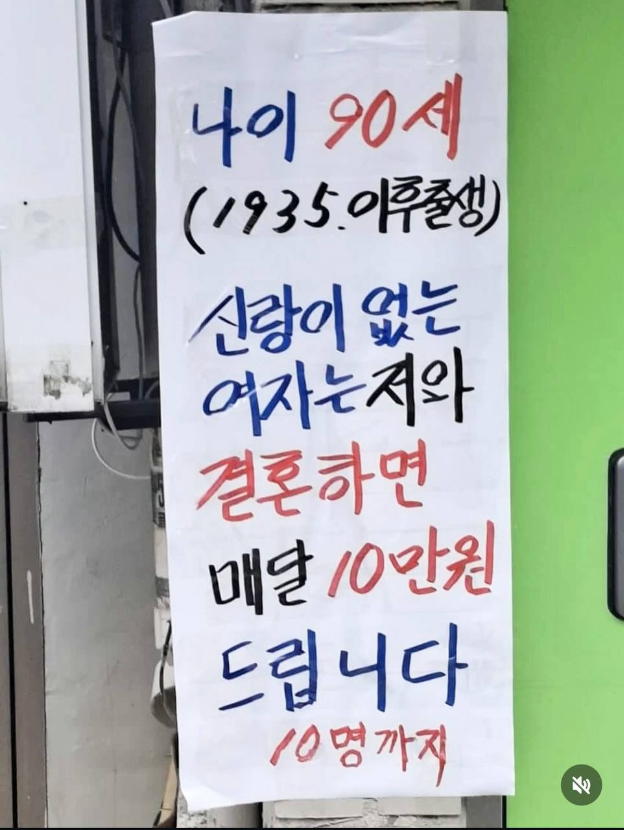 나이 90세
(1935.이후출생)
신랑이 없는
여자는 저와
결혼하면
매달 10만원
드립니다
10명까지